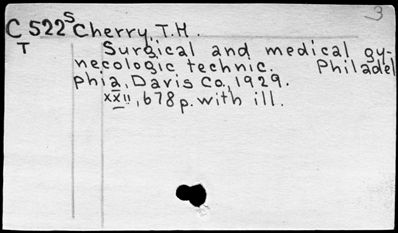 3
C 522 S Cherry, T.H.
T Surgical and medical gy-
necologic technic. Philadel
phia, Davis Co., 1929.
xxii, 678 p. with ill.